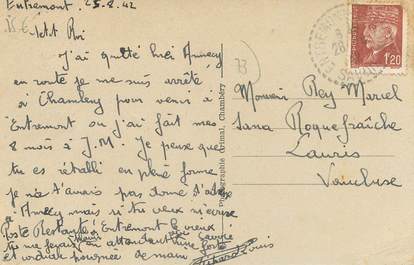 Entremont, 25.8.42
Petit Roi
J'ai quitté hier Annecy
en route je me suis arrêté
à Chambéry pour venir à
Entremont ou j'ai fait mes
8 mois à J.M. Je pense que
tu es rétabli en pleine forme
je ne t'avais pas donné d'adr
à Annecy mais si tu veux m'écrire
Poste Restante à Entremont le vieux
tu me ferais en attendant une forte
et cordiale poignée de main
Louis
Photographie Grimal, Chambéry
Monsieur Rey Marcel
sana Roquefraîche
Lauris
Vaucluse
1.20